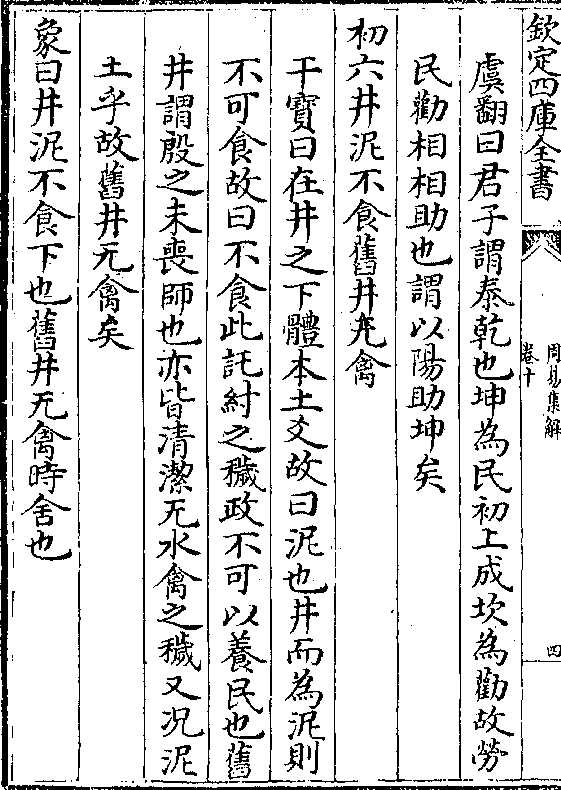 欽定四庫全書
周易集解
卷十
四
虞翻曰君子謂泰乾也坤為民初上成坎為勸故勞
民勸相相助也謂以陽助坤矣
初六井泥不食舊井无禽
干寶曰在井之下體本土爻故曰泥也井而為泥則
不可食故曰不食此託紂之穢政不可以養民也舊
井謂殷之未喪師也亦皆清潔无水禽之穢又况泥
土乎故舊井无禽矣
象曰井泥不食下也舊井无禽時舍也